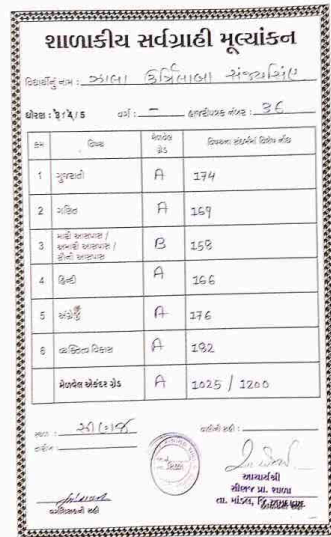 શાળાકીય સર્વગ્રાહી મૂલ્યાંકન
વિદ્યાર્થીનું નામ : ઝાલા
ધોરણ : 3/4/5 વર્ગ : - હાજરીપત્રક નંબર : 36
ક્રમ વિષય મેળવેલ ગ્રેડ વિષયના સંદર્ભમાં વિશેષ નોંધ
1 ગુજરાતી A 174
2 ગણિત A 169
3 મારી આસપાસ / અમારી આસપાસ / સૌની આસપાસ B 158
4 હિન્દી A 166
5 અંગ્રેજી A 176
6 વ્યક્તિત્વ વિકાસ A 182
મેળવેલ એકંદર ગ્રેડ A 1025 / 1200
સ્થળ : સીણજ વાલીની સહી :
તારીખ :
આચાર્યશ્રી
સીણજ પ્રા. શાળા
તા. માંડલ, જિ. અમદાવાદ
વર્ગશિક્ષકની સહી